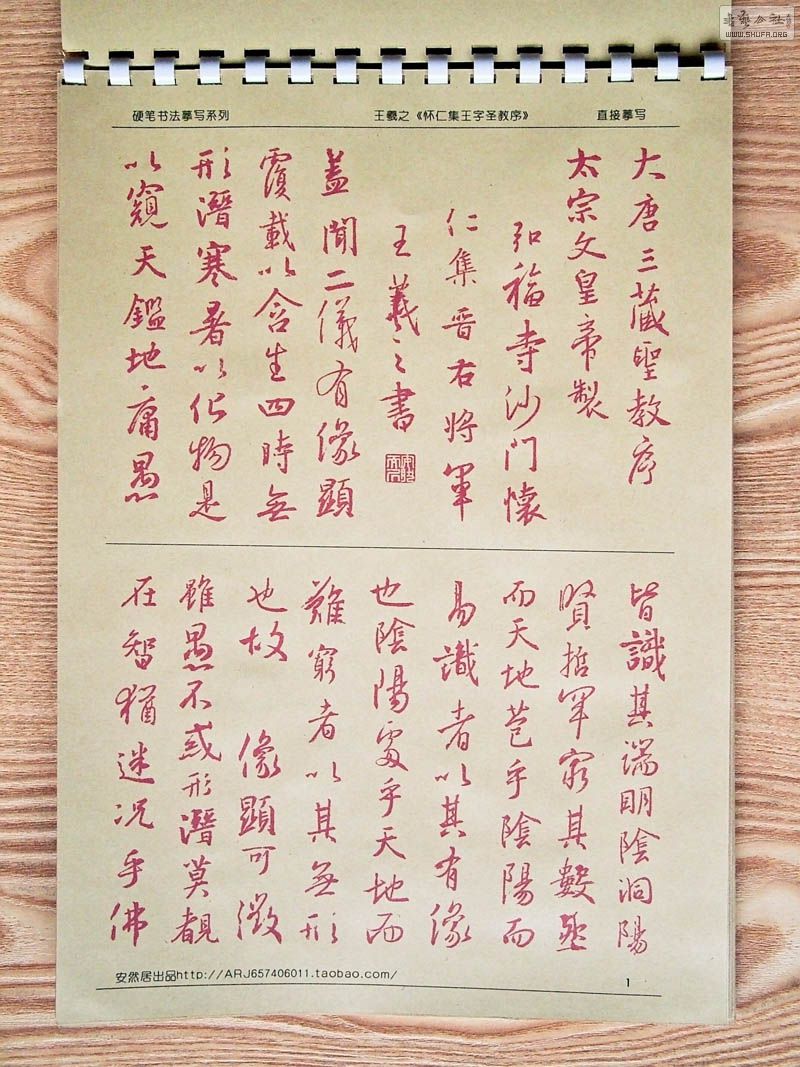 书艺公社
WWW.SHUFA.ORG
硬笔书法摹写系列 王羲之《怀仁集王字圣教序》 直接摹写
大唐三藏聖教序
太宗文皇帝製
弘福寺沙门懷
仁集晋右将軍
王羲之書
蓋聞二儀有像顯
覆載以含生四時無
形潛寒暑以化物是
以窺天鑑地庸愚
皆識其端明陰洞陽
賢哲罕窮其數然
而天地苞乎陰陽而
易識者以其有像
也陰陽處乎天地而
難窮者以其無形
也故 像顯可徵
雖愚不惑形潛莫覩
在智猶迷况乎佛
安然居出品http://ARJ657406011.taobao.com/ 1